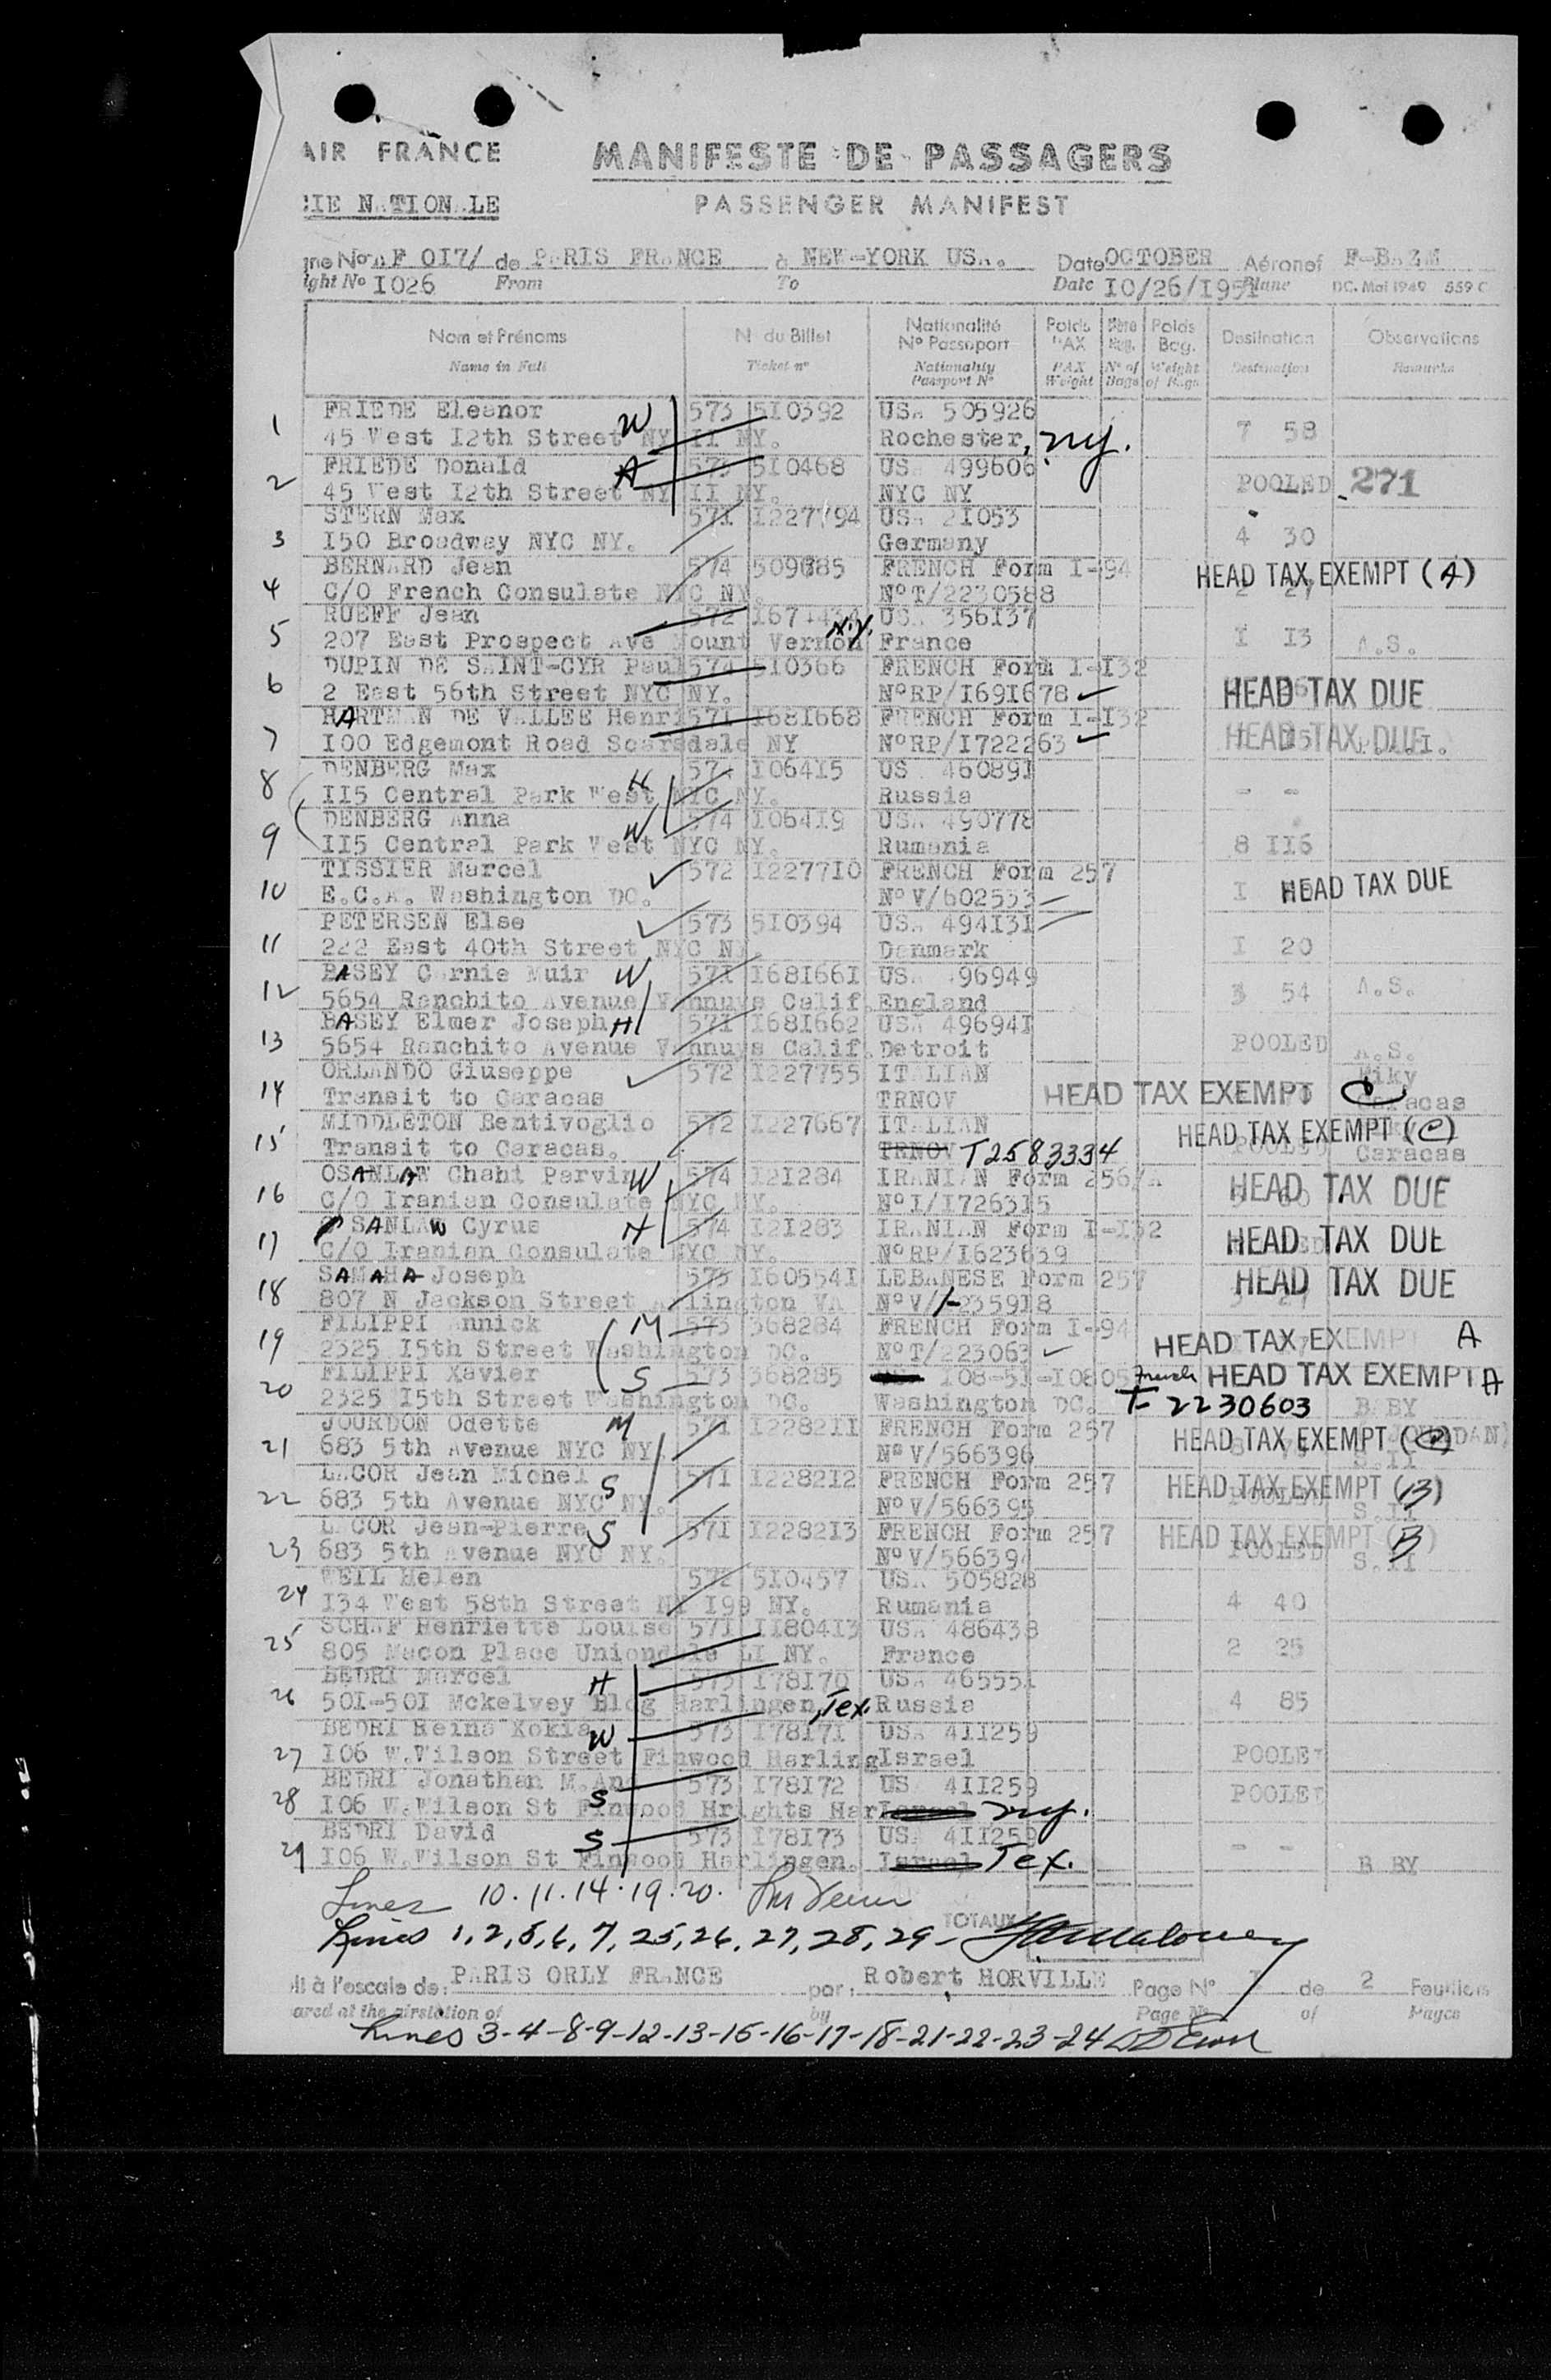 AIR FRANCE MANIFESTE DE PASSAGERS
CIE NATIONALE PASSENGER MANIFEST
gne No AF 017/ de PARIS FRANCE à NEW-YORK USA. Date OCTOBER Aéronef F-BAZM
ight No 1026 From To Date 10/26/1951 Plane DC. Mai 1949 559 C
Nom et Prénoms N du Billet Nationalité No Passeport Poids PAX Nbre Bag. Poids Bag. Destination Observations
Name in Full Ticket no Nationality Passport No PAX Weight No of Bags Weight of Bags Destination Remarks
1 FRIEDE Eleanor W 573 510392 USA 505926
45 West 12th Street NY 11 NY. Rochester, NY. 7 58
2 FRIEDE Donald H 573 510468 USA 499606
45 West 12th Street NY 11 NY. NYC NY POOLED 271
3 STERN Max 571 1227794 USA 21053
150 Broadway NYC NY. Germany 4 30
4 BERNARD Jean 574 509685 FRENCH Form I-94 HEAD TAX EXEMPT (A)
C/O French Consulate NYC NY. No T/2230588
5 RUEFF Jean 572 USA 356137
207 East Prospect Ave Mount Vernon N.Y. France 1 13 A.S.
6 DUPIN DE SAINT-CYR Paul 574 510366 FRENCH Form I-132
2 East 56th Street NYC NY. No RP/1691678 HEAD TAX DUE
7 HARTMAN DE VALLEE Henri 571 1681668 FRENCH Form I-132
100 Edgemont Road Scarsdale NY No RP/1722263 HEAD TAX DUE
8 DENBERG Max H 574 106415 US 460891
115 Central Park West NYC NY. Russia - -
9 DENBERG Anna W 574 106419 USA 490778
115 Central Park West NYC NY. Rumania 8 116
10 TISSIER Marcel 572 1227710 FRENCH Form 257
E.C.A. Washington DC. No V/602533 1 HEAD TAX DUE
11 PETERSEN Else 573 510394 USA 494131
222 East 40th Street NYC NY. Danmark 1 20
12 BASEY Carnie Muir W 571 1681661 USA 496949
5654 Ranchito Avenue Vannuys Calif. England 3 54 A.S.
13 BASEY Elmer Joseph H 571 1681662 USA 496941
5654 Ranchito Avenue Vannuys Calif. Detroit POOLED A.S.
14 ORLANDO Giuseppe 572 1227755 ITALIAN
Transit to Caracas TRNOV HEAD TAX EXEMPT C Caracas
15 MIDDLETON Bentivoglio 572 1227667 ITALIAN HEAD TAX EXEMPT (C)
Transit to Caracas. TRNOV T2583334 POOLED Caracas
16 OSANLAW Chahi Parvin W 574 121284 IRANIAN Form 256/A
C/O Iranian Consulate NYC NY. No I/1726315 HEAD TAX DUE
17 OSANLAW Cyrus H 574 121283 IRANIAN Form I-132
C/O Iranian Consulate NYC NY. No RP/1623639 HEAD TAX DUE
18 SAMAHA Joseph 573 1605541 LEBANESE Form 257 HEAD TAX DUE
807 N Jackson Street Arlington VA No V/1-235918
19 FILIPPI Annick M 573 368284 FRENCH Form I-94
2325 15th Street Washington DC. No T/223063 HEAD TAX EXEMPT A
20 FILIPPI Xavier S 573 368285 108-51-10805 French HEAD TAX EXEMPT A
2325 15th Street Washington DC. Washington DC. T-2230603 BABY
21 JOURDON Odette M 571 1228211 FRENCH Form 257
683 5th Avenue NYC NY. No V/566396 HEAD TAX EXEMPT S.II
22 LACOR Jean Michel S 571 1228212 FRENCH Form 257 HEAD TAX EXEMPT (B)
683 5th Avenue NYC NY. No V/566395 POOLED S.II
23 LACOR Jean-Pierre S 571 1228213 FRENCH Form 257 HEAD TAX EXEMPT (B)
683 5th Avenue NYC NY. No V/566394 POOLED S.II
24 WEIL Helen 572 510457 USA 505828
134 West 58th Street NY 199 NY. Rumania 4 40
25 SCHAF Henriette Louise 571 1180413 USA 486438
805 Macon Place Uniondale LI NY. France 2 25
26 BEDRI Marcel H 573 178170 USA 465551
501-501 Mckelvey Bldg Harlingen, Tex. Russia 4 85
27 BEDRI Reina Kokia W 573 178171 USA 411259
106 W.Wilson Street Finwood Harling Israel POOLED
28 BEDRI Jonathan M.An S 573 178172 US 411259
106 W.Wilson St Finwood Hrights Har Israel NY. POOLED
29 BEDRI David S 573 178173 USA 411259
106 W.Wilson St Finwood Harlingen. Israel Tex. - - BABY
Lines 10.11.14.19.20.
TOTAUX
Lines 1,2,5,6,7,25,26,27,28,29-
li à l'escale de: PARIS ORLY FRANCE par: Robert HORVILLE Page No 1 de 2 Feuillets
ared at the airstation of by Page No of Pages
Lines 3-4-8-9-12-13-15-16-17-18-21-22-23-24